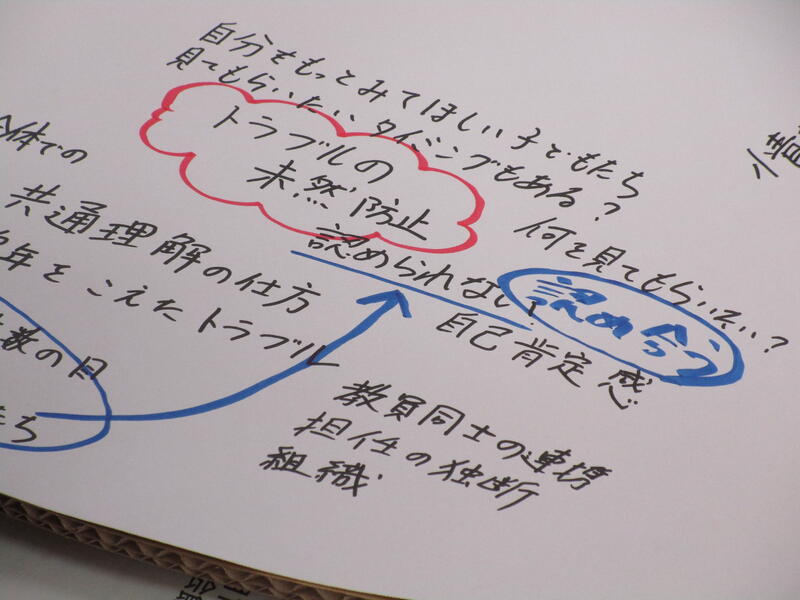 自分をもっとみてほしい子どもたち
見てもらいたいタイミングもある？
トラブルの
未然防止
何を見てもらいたい？
認められない
認め合う
自己肯定感
体での
共通理解の仕方
年をこえたトラブル
数の目
ち
教員同士の連携
担任の独断
組織